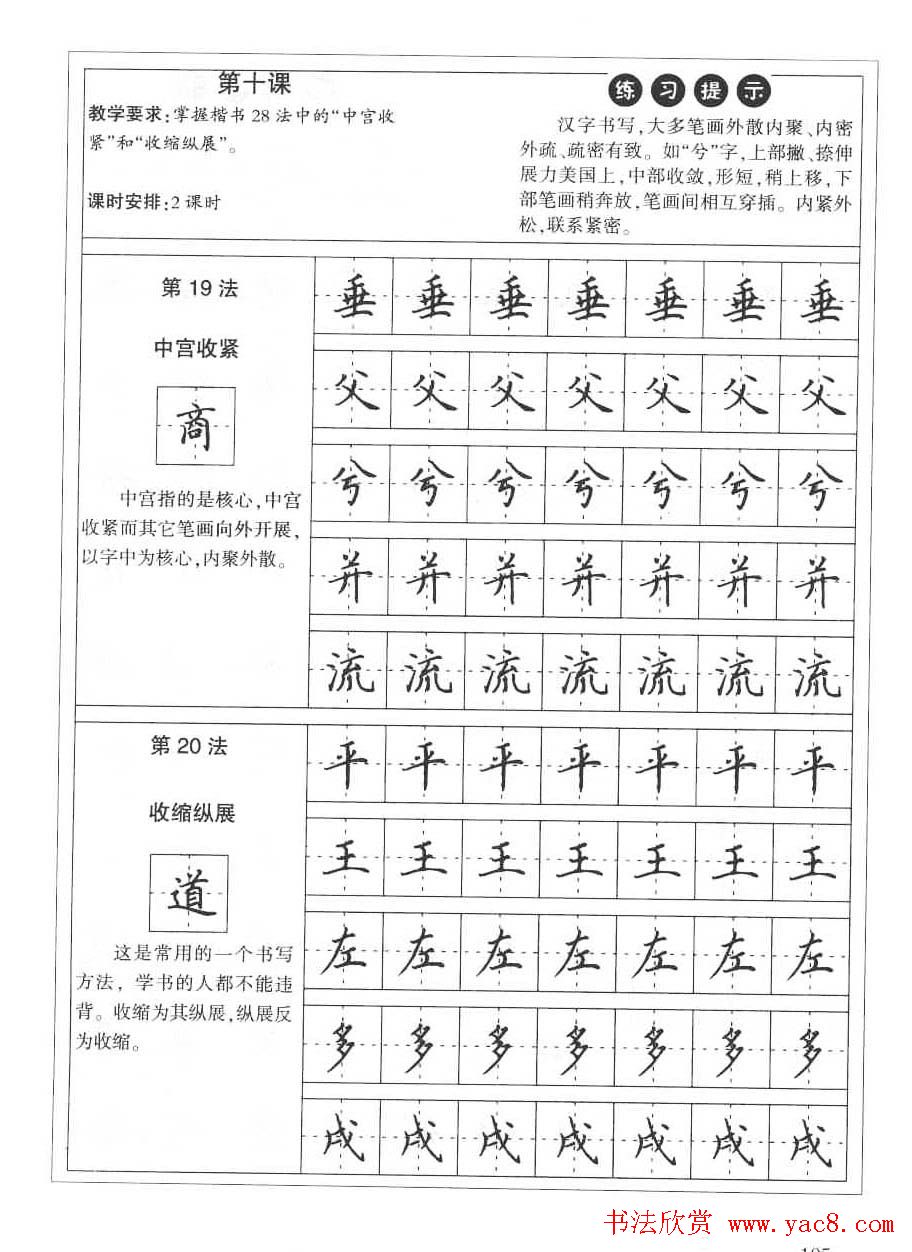 第十课
教学要求:掌握楷书28法中的“中宫收
紧”和“收缩纵展”。
课时安排:2课时
练习提示
汉字书写,大多笔画外散内聚、内密
外疏、疏密有致。如“兮”字,上部撇、捺伸
展力美国上,中部收敛,形短,稍上移,下
部笔画稍奔放,笔画间相互穿插。内紧外
松,联系紧密。
第19法
中宫收紧
商
中宫指的是核心,中宫
收紧而其它笔画向外开展,
以字中为核心,内聚外散。
垂垂垂垂垂垂垂
父父父父父父父
兮兮兮兮兮兮兮
并并并并并并并
流流流流流流流
第20法
收缩纵展
道
这是常用的一个书写
方法，学书的人都不能违
背。收缩为其纵展,纵展反
为收缩。
平平平平平平平
王王王王王王王
左左左左左左左
多多多多多多多
书法欣赏 www.yac8.com